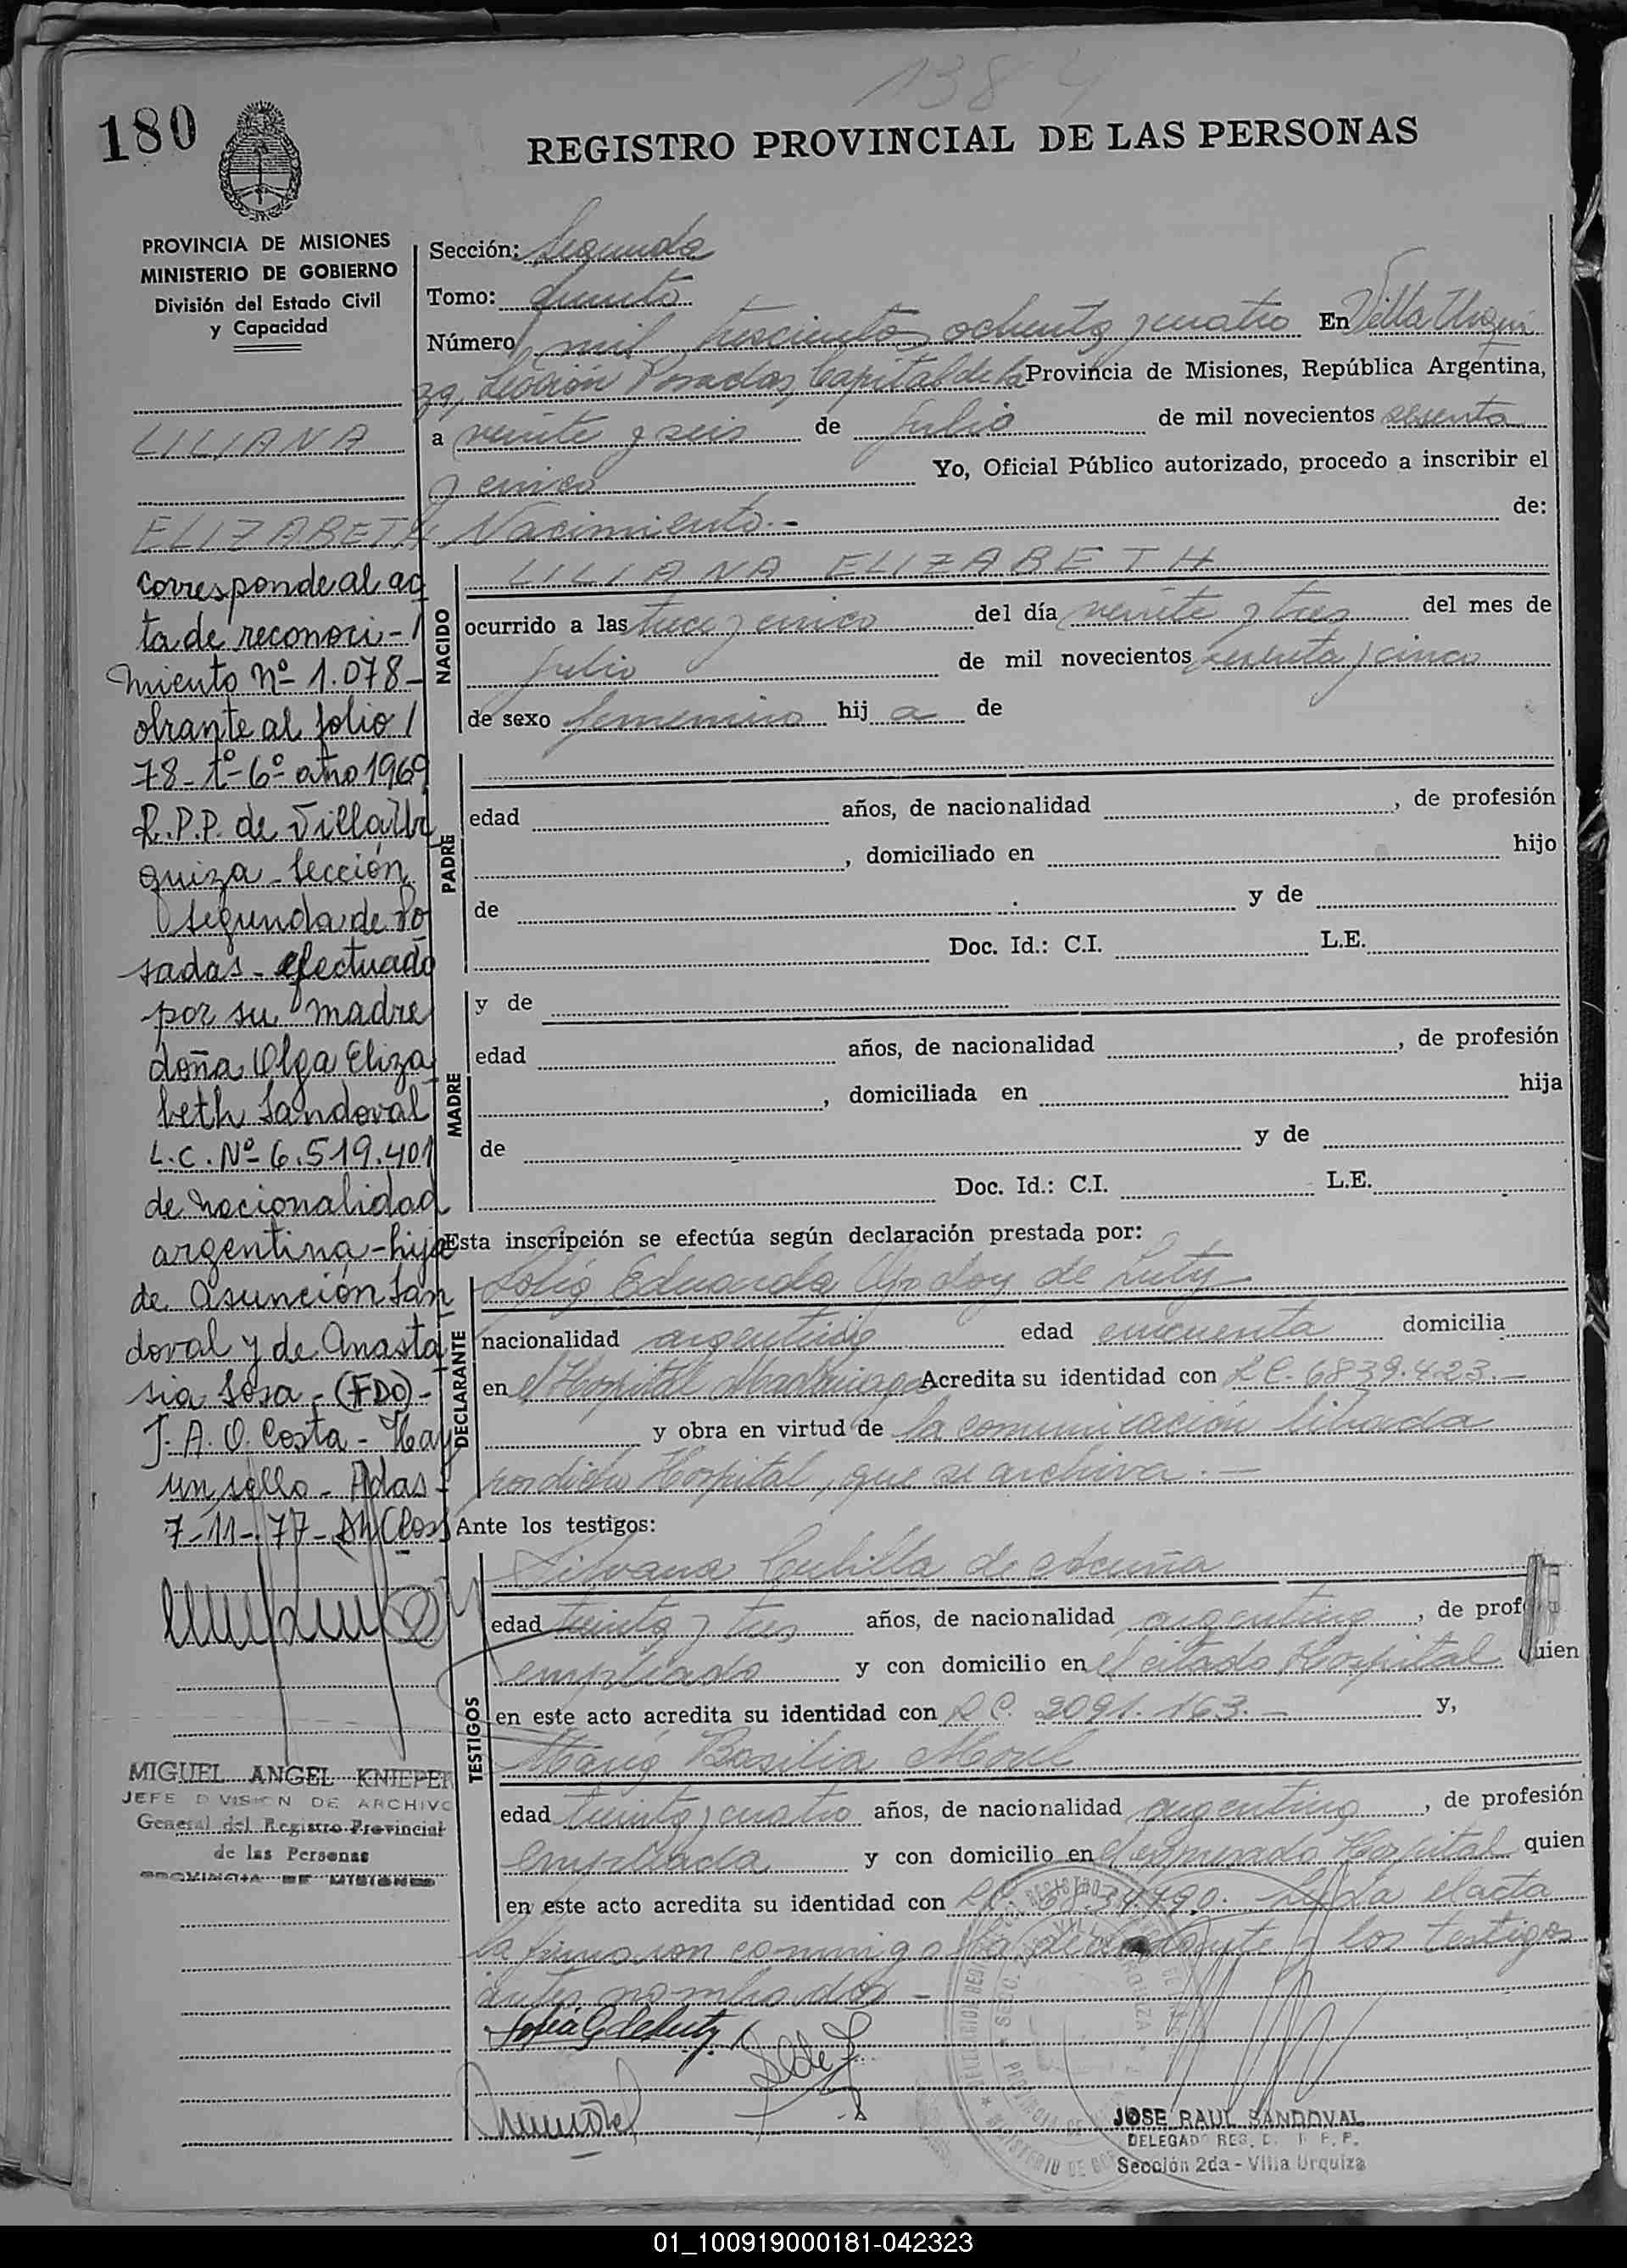 1384
180
REGISTRO PROVINCIAL DE LAS PERSONAS
PROVINCIA DE MISIONES
MINISTERIO DE GOBIERNO
División del Estado Civil
y Capacidad
LILIANA
ELIZABETH
corresponde al ac
ta de reconoci-
miento Nº 1.078-
obrante al folio
78-tº-6º año 1969
R.P.P. de Villa Ur
quiza - Sección
Segunda de Po
sadas - efectuado
por su madre
doña Olga Eliza
beth Sandoval
L.C. Nº 6.519.401
de nacionalidad
argentina - hija
de Asunción San
doval y de Anasta
sia Sosa - (FDO) -
J. A. O. Costa - Hay
un sello - Pdas -
7-11-77-
MIGUEL ANGEL KNIEPER
JEFE DIVISION DE ARCHIVO
General del Registro Provincial
de las Personas
PROVINCIA DE MISIONES
Sección: Segunda
Tomo: Quinto
Número mil trescientos ochenta y cuatro En Villa Urqui
za, Sección Posadas Capital de la Provincia de Misiones, República Argentina,
a veinte y seis de Julio de mil novecientos sesenta
y cinco Yo, Oficial Público autorizado, procedo a inscribir el
Nacimiento.- de:
NACIDO
LILIANA ELIZABETH
ocurrido a las trece y cinco del día veinte y tres del mes de
Julio de mil novecientos sesenta y cinco
de sexo femenino hij a de
PADRE
edad años, de nacionalidad , de profesión
, domiciliado en hijo
de y de
Doc. Id.: C.I. L.E.
MADRE
y de
edad años, de nacionalidad , de profesión
, domiciliada en hija
de y de
Doc. Id.: C.I. L.E.
Esta inscripción se efectúa según declaración prestada por:
DECLARANTE
Sofía Eduarda Godoy de Luty
nacionalidad argentina edad cincuenta domicilia
en el Hospital Madariaga Acredita su identidad con L.C. 6839.423.-
y obra en virtud de la comunicación librada
por dicho Hospital, que se archiva.-
Ante los testigos:
TESTIGOS
Silvana Cubilla de Acuña
edad treinta y tres años, de nacionalidad argentina, de prof
empleada y con domicilio en el citado Hospital quien
en este acto acredita su identidad con L.C. 2091.163.- y,
María Basilia Morel
edad treinta y cuatro años, de nacionalidad argentina, de profesión
empleada y con domicilio en el expresado Hospital quien
en este acto acredita su identidad con Leída el acta
la firman conmigo la declarante y los testigos
antes nombrados.-
Sofía G de Luty
JOSE RAUL SANDOVAL
DELEGADO REG. P. P.
Sección 2da - Villa Urquiza
01_100919000181-042323